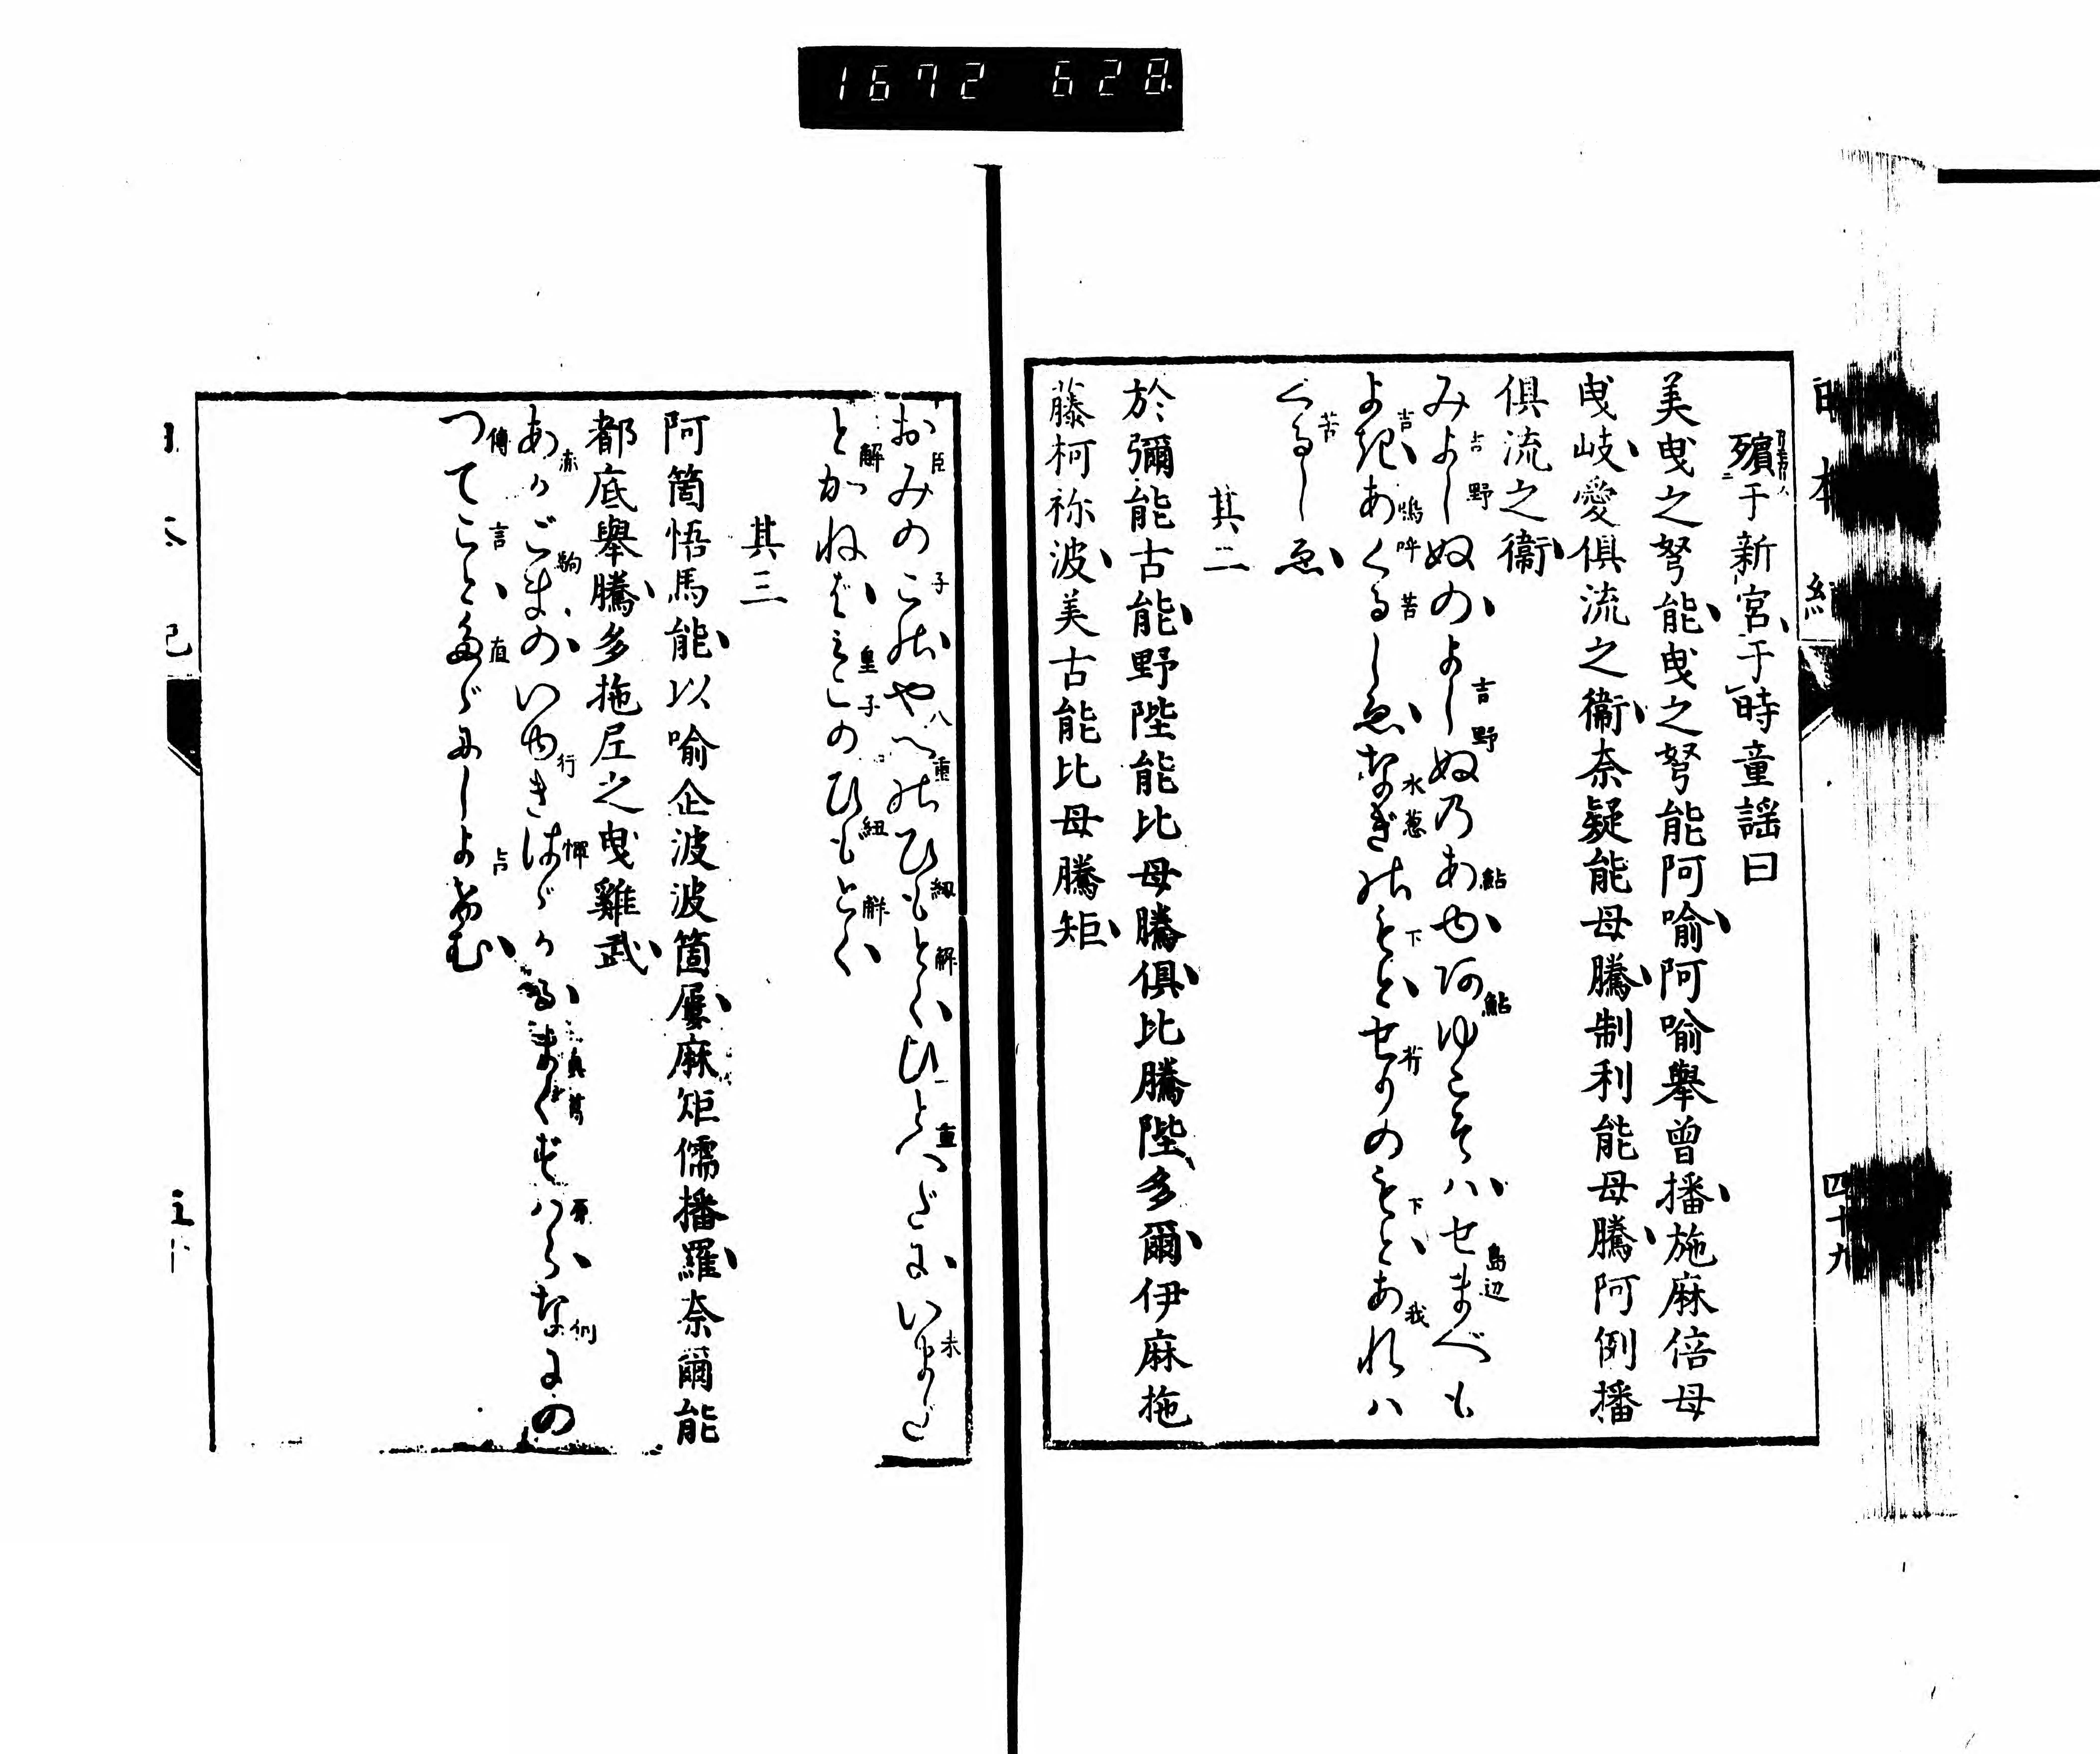 1672 628
殯于新宮、于時童謡曰
美曵之弩能、曵之弩能阿喻、阿喻舉曾播、施麻倍母
曵岐、愛俱流之衞、奈疑能母騰、制利能母騰、阿例播
俱流之衞、
みよしぬの、よしぬ乃あゆ、阿ゆこそハ、せまべも
よき、あくるしゑ、なぎのもと、せりのもと、あれハ
くるしゑ、
其二
於彌能古能、野陛能比母騰俱、比騰陛、多爾、伊麻拖
藤柯祢波、美古能比母騰矩、
おみのこの、やへのひもとく、ひとへだに、いまだ
とかねば、みこのひもとく、
其三
阿箇悟馬能、以喻企波波箇屢、麻矩儒播羅、奈爾能
都底舉騰、多拖尼之曵雞武、
あかごまの、いゆきはゞかる、まくずハら、なにの
つてこと、たゞにしよけむ、
四十九